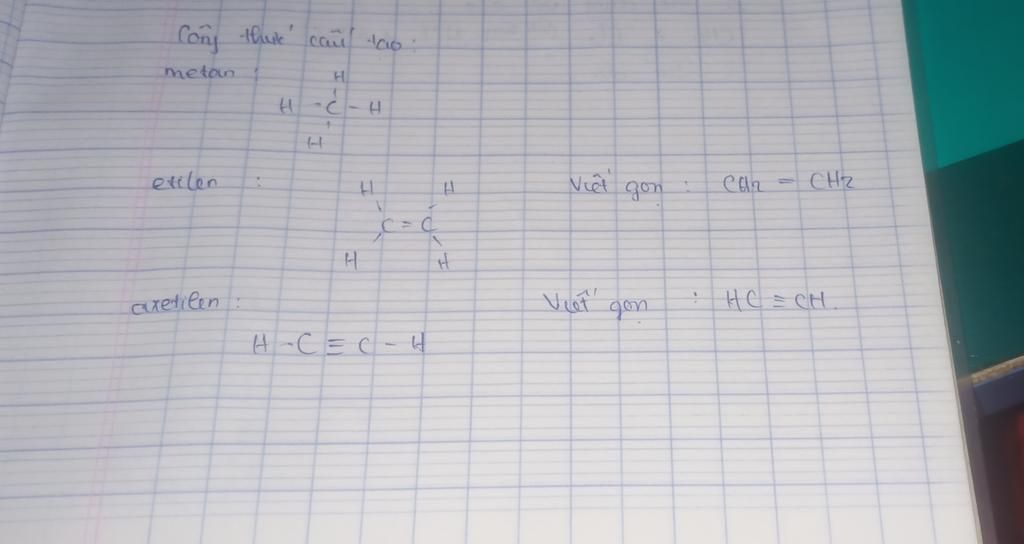 Công thức cấu tạo:
metan:
H
H - C - H
H
etilen : Viết gọn : CH2 = CH2
H H
C = C
H H
axetilen : Viết gọn : HC ≡ CH.
H - C ≡ C - H